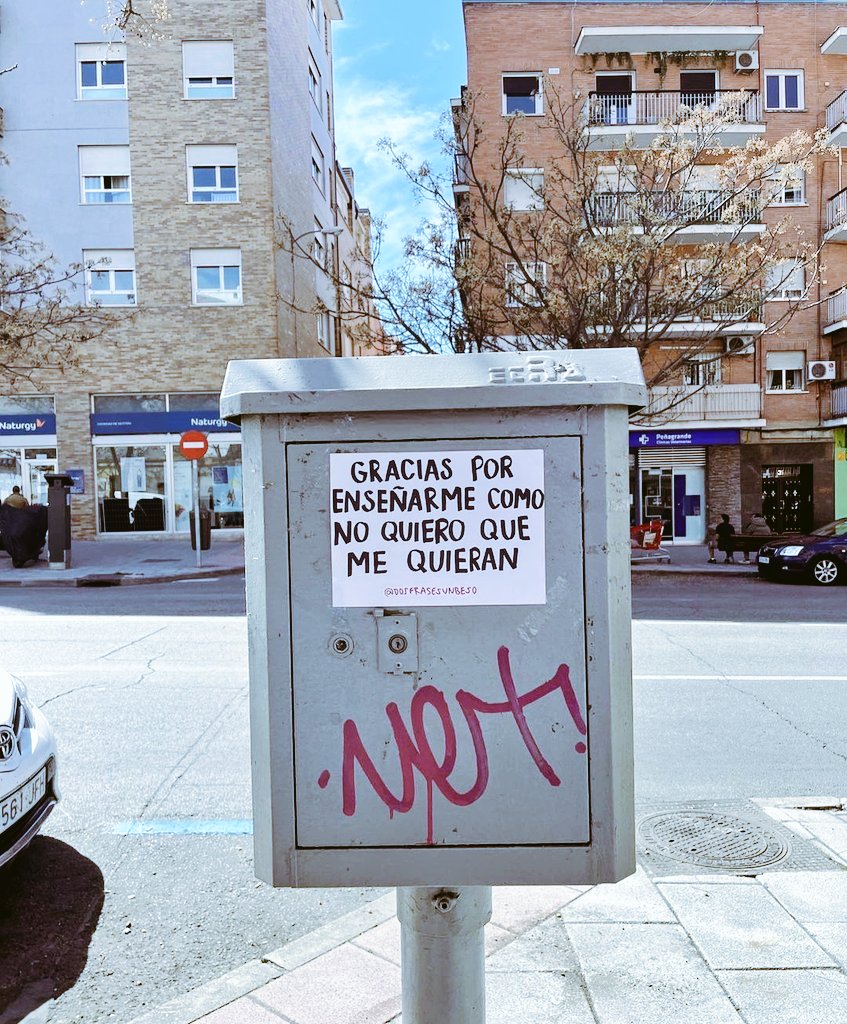 Naturgy
Naturgy
Peñagrande
Clínicas Veterinarias
GRACIAS POR
ENSEÑARME COMO
NO QUIERO QUE
ME QUIERAN
@DOSFRASESUNBESO
561 JFF